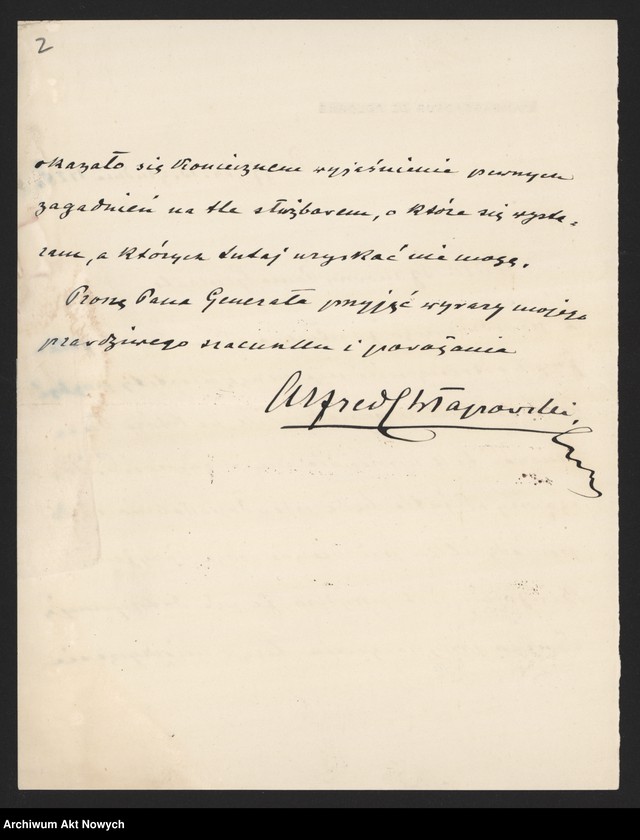 2
okazało się koniecznem wyjaśnienie pewnych
zagadnień na tle służbowem, o które się wysta-
ram, a których tutaj uzyskać nie mogę.
Proszę Pana Generała przyjąć wyrazy mojego
prawdziwego szacunku i poważania
Alfred Chłapowski
Archiwum Akt Nowych